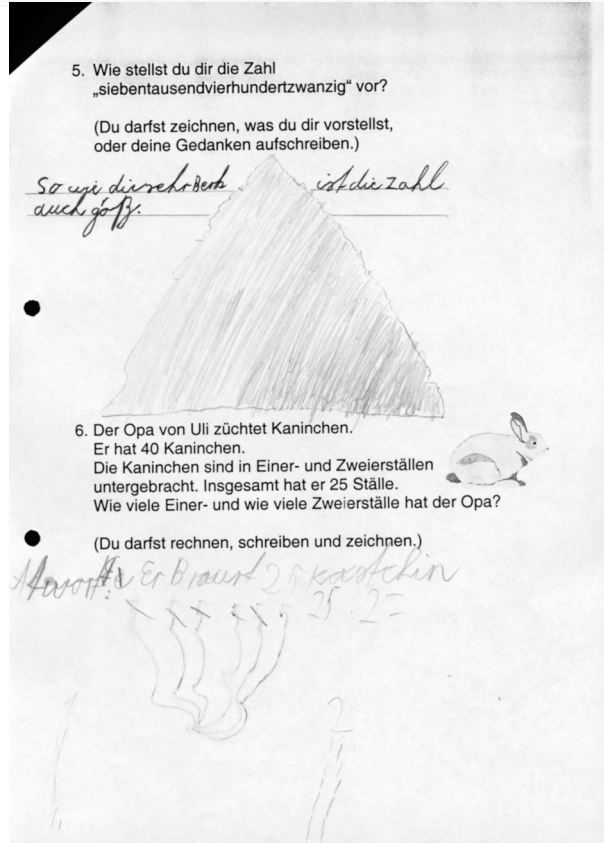 5. Wie stellst du dir die Zahl
„siebentausendvierhundertzwanzig“ vor?
(Du darfst zeichnen, was du dir vorstellst,
oder deine Gedanken aufschreiben.)
So wie ist die Zahl
auch
6. Der Opa von Uli züchtet Kaninchen.
Er hat 40 Kaninchen.
Die Kaninchen sind in Einer- und Zweierställen
untergebracht. Insgesamt hat er 25 Ställe.
Wie viele Einer- und wie viele Zweierställe hat der Opa?
(Du darfst rechnen, schreiben und zeichnen.)
Er Braust 25
25 : 2 =
2